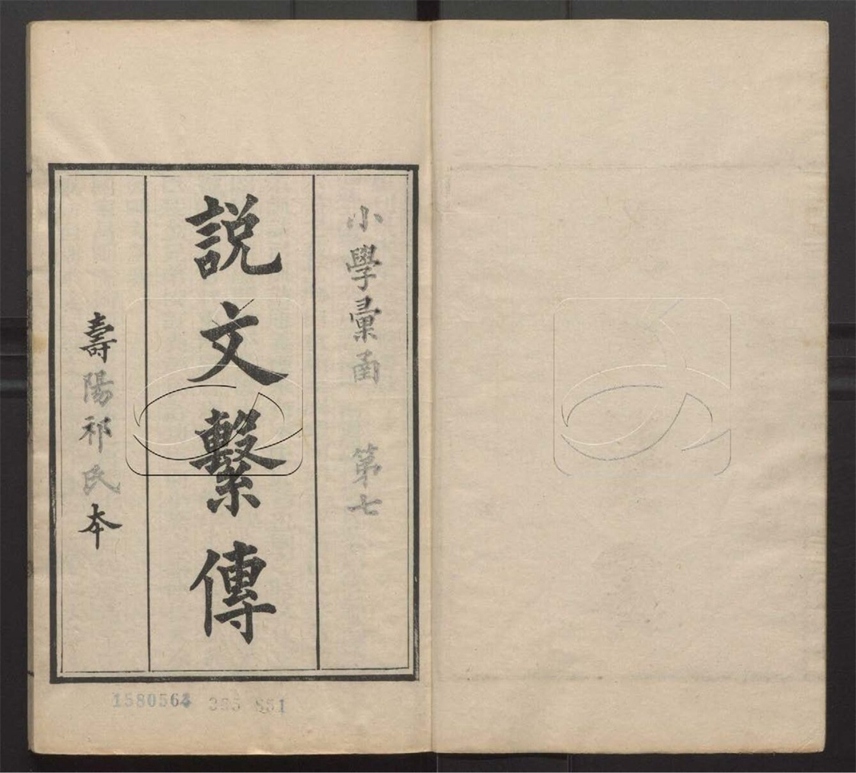 小學彙函　第七
説文繫傳
壽陽祁氏本
1580564 385 851